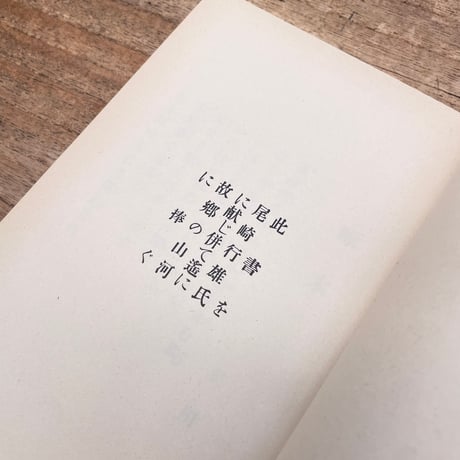 此書を
尾崎行雄氏
に献じ併て遙に
故郷の山河
に捧ぐ